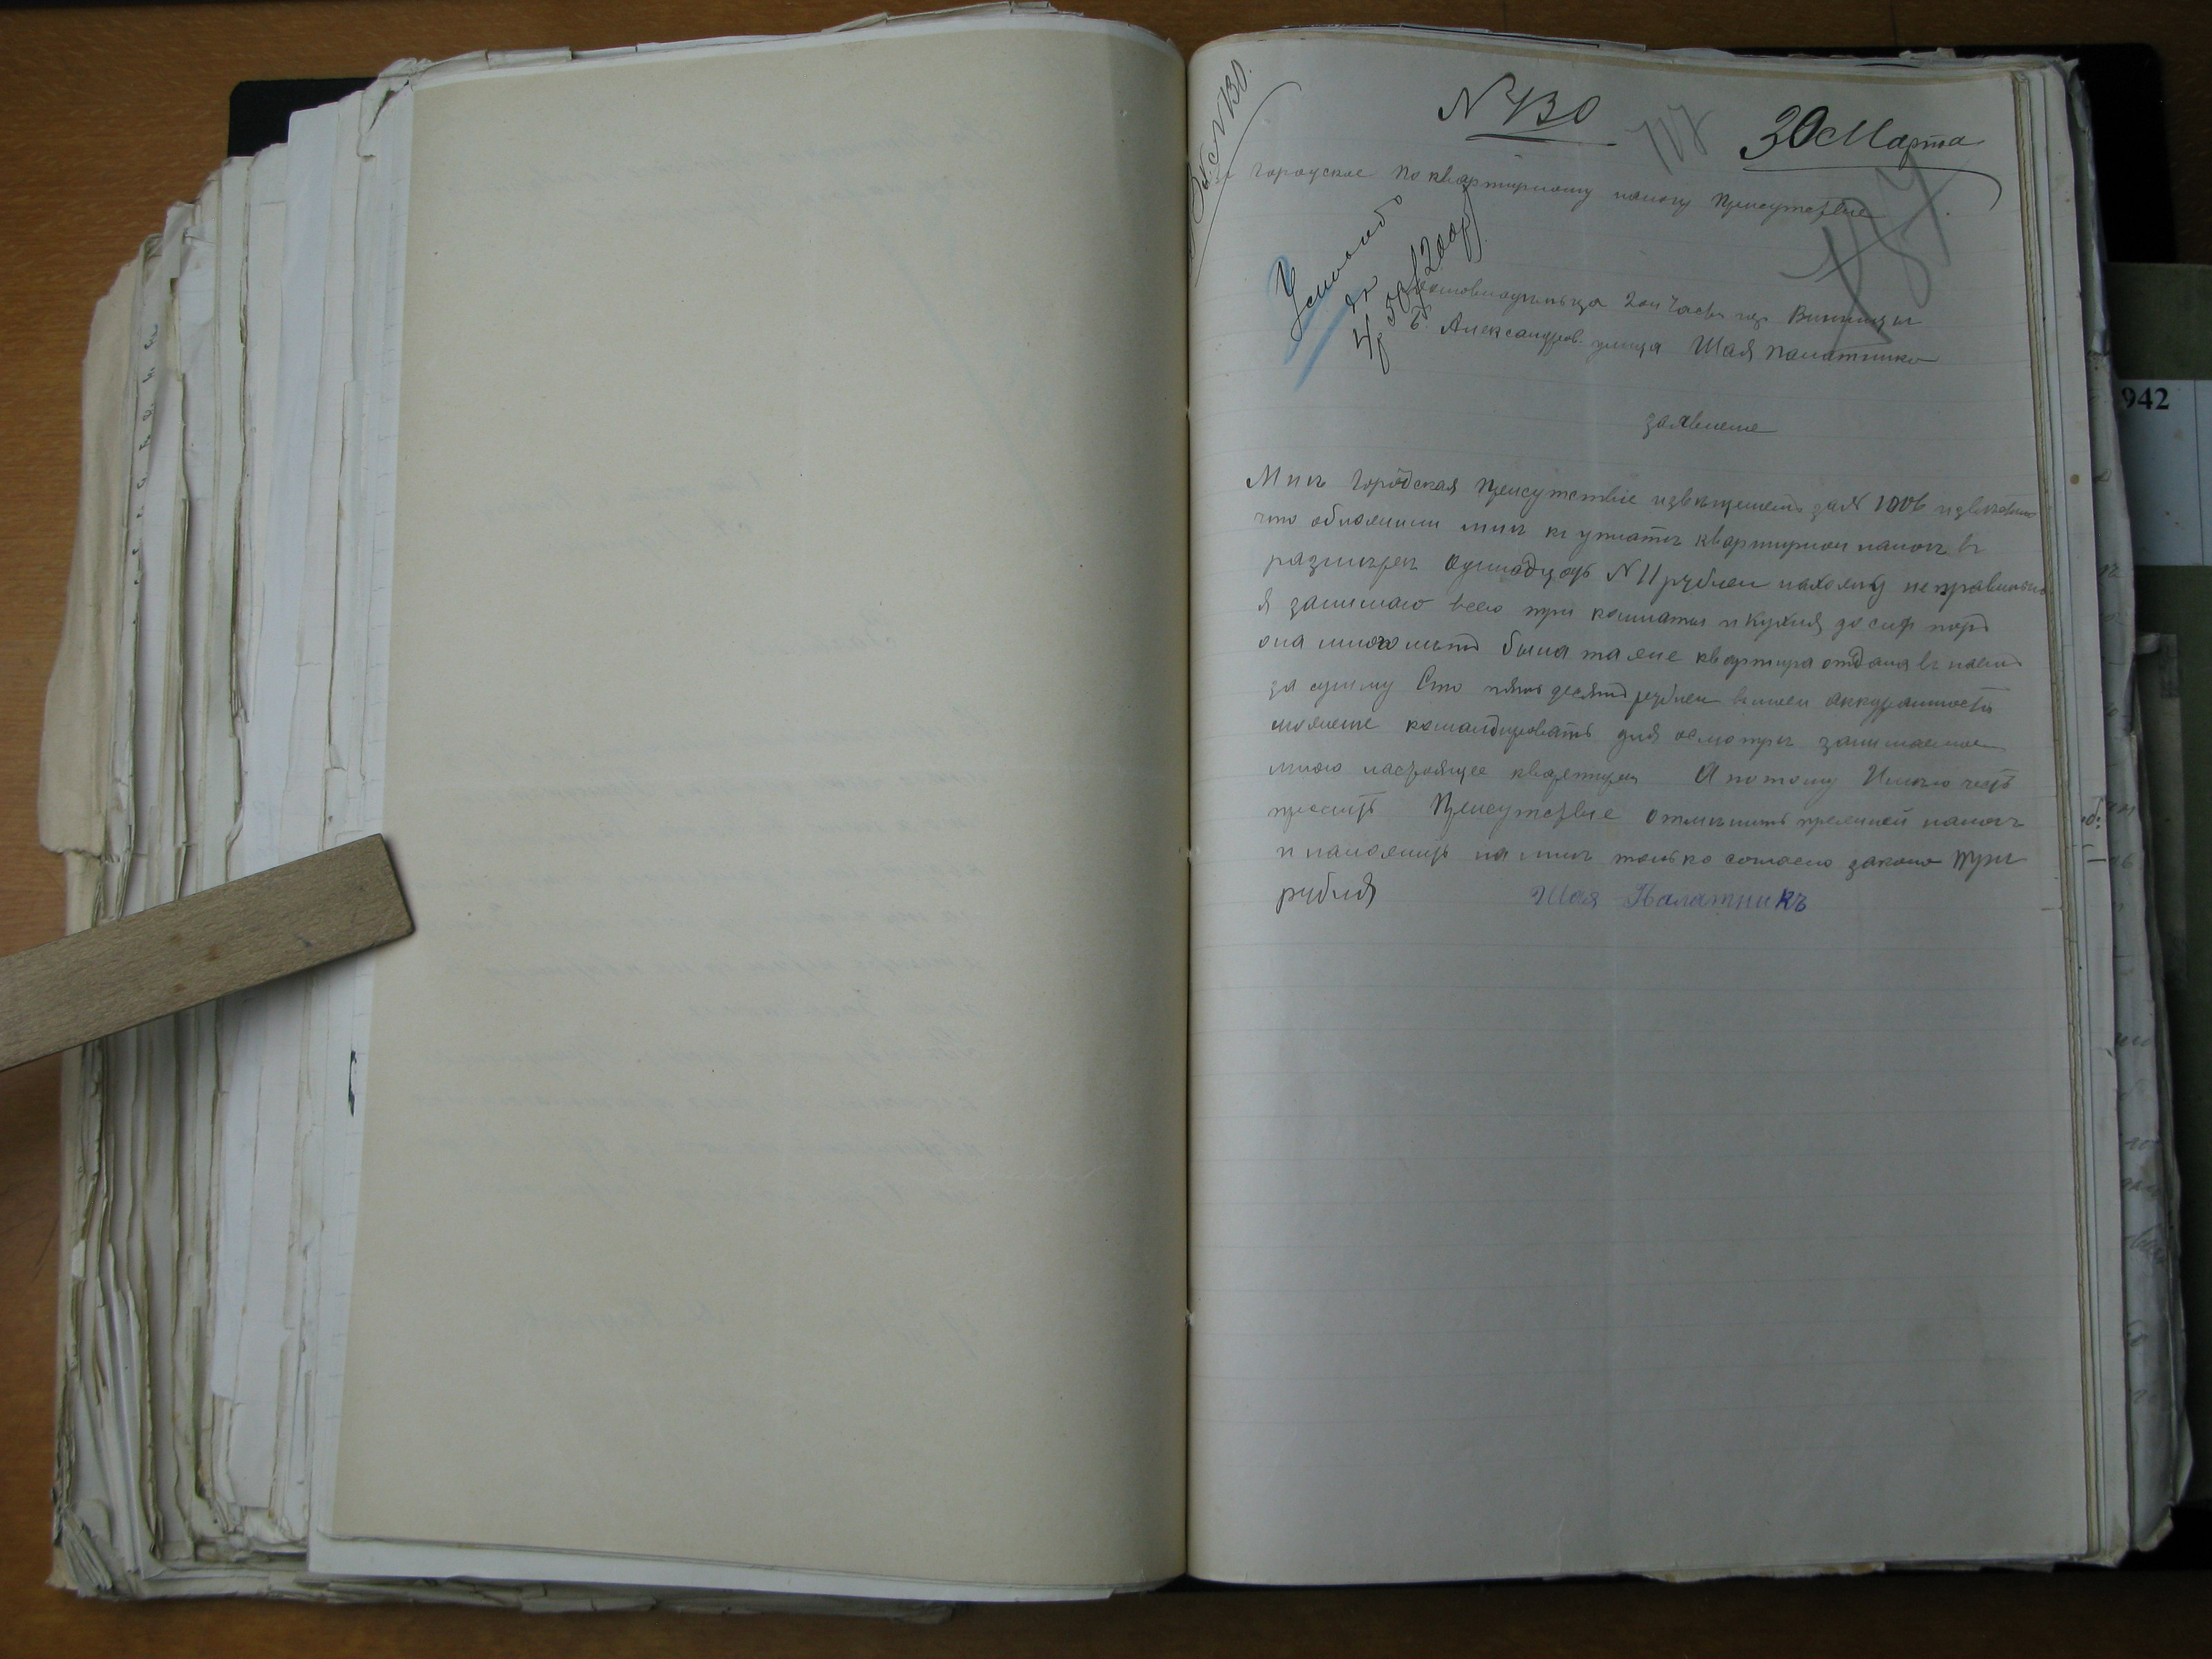 N 130
30 Марта
187
Городское по квартирному налогу Присутствие
4р 50к (200р)
Домовладельца 2ой части гор Винницы
Б. Александров. улица Шая Палатника
заявление
Мнѣ Городская Присутствие извѣщением за N 1006
что обложили мнѣ къ уплатѣ квартирной налогъ в
размѣрѣ Одинадцать N 11 рублей нахожу неправильно
я занимаю всего три комнаты и кухня до сих порѣ
она много лѣтѣ была та же квартира отдана въ наемѣ
за сумму Сто пятьдесятѣ рублей аккуратность
можете командировать для осмотра занимаемое
мною настоящее квартиру А потому Имѣю честь
просить Присутствие отмѣнить прежней налогъ
и наложить на мнѣ только согласно закона три
рубля Шая Палатникъ
942